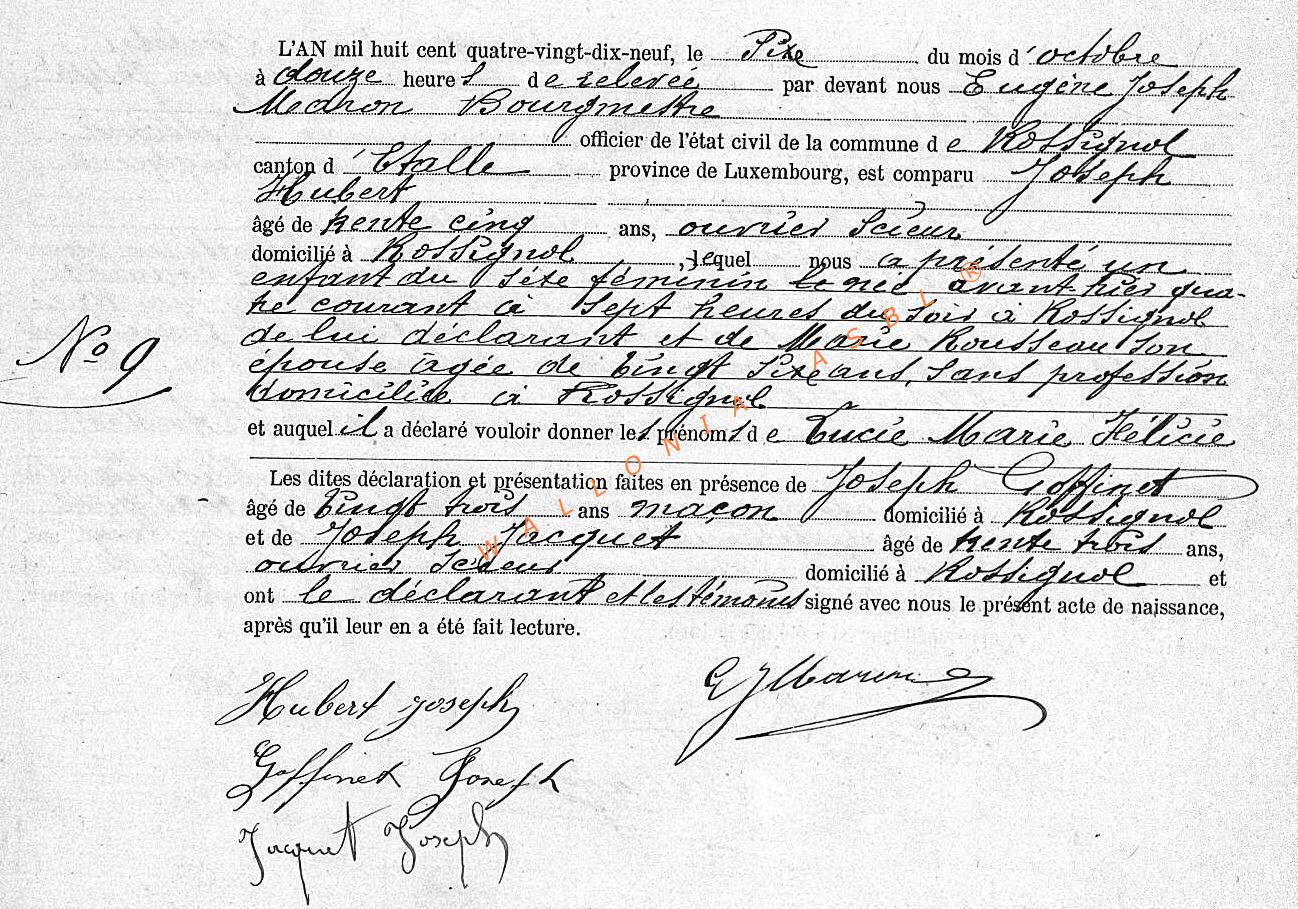 L'AN mil huit cent quatre-vingt-dix-neuf, le Sixe du mois d'octobre
à douze heures de relevée par devant nous Eugène Joseph
Maron Bourgmestre
officier de l'état civil de la commune de Rossignol
canton d'Etalle province de Luxembourg, est comparu Joseph
Hubert
âgé de trente cinq ans, ouvrier Scieur
domicilié à Rossignol, lequel nous a présenté un
enfant du séxe féminin née avant-hier qua-
tre courant à sept heures du soir à Rossignol
de lui déclarant et de Marie Rousseau son
épouse agée de vingt sixe ans, sans profession
domiciliée à Rossignol
No 9
et auquel il a déclaré vouloir donner les prénoms de Lucie Marie Félicie
Les dites déclaration et présentation faites en présence de Joseph Goffinet
âgé de vingt trois ans maçon domicilié à Rossignol
et de Joseph Jacquet âgé de trente trois ans,
ouvrier Scieur domicilié à Rossignol et
ont le déclarant et les témoins signé avec nous le présent acte de naissance,
après qu'il leur en a été fait lecture.
Hubert Joseph
E J Maron
Goffinet Joseph
Jacquet Joseph
WALLONIA ASBL ®